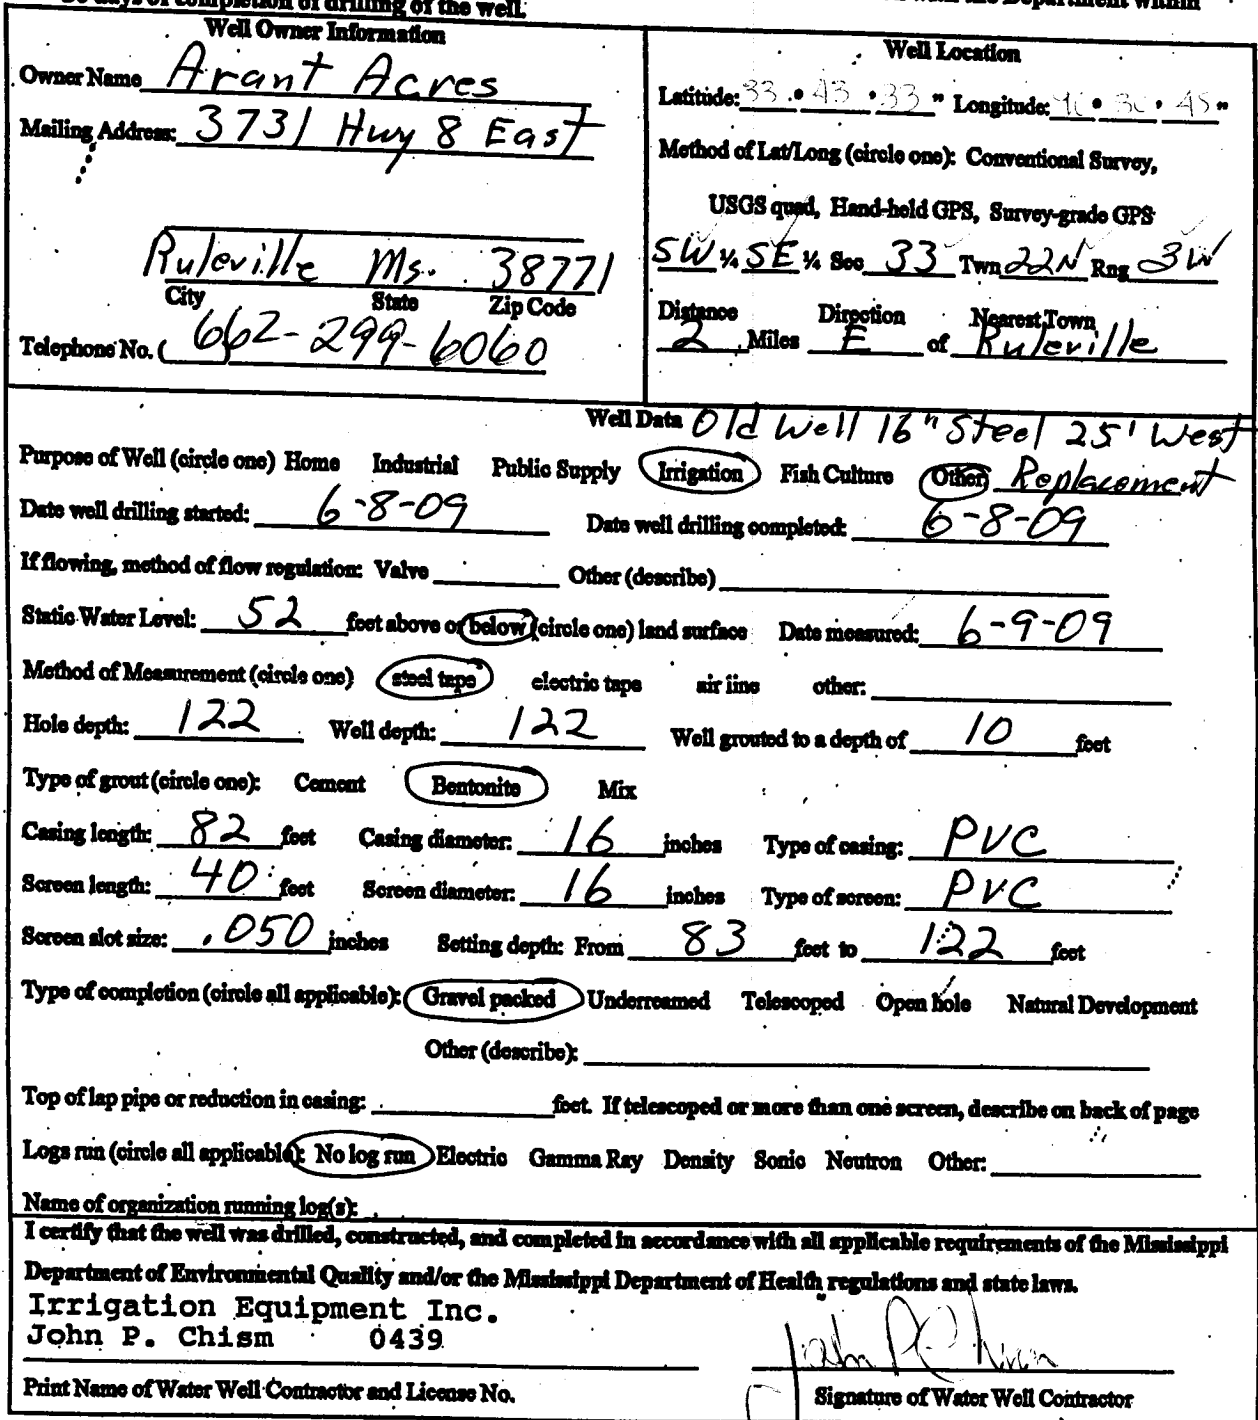 days of completion of drilling of the well.
the Department within
Well Owner Information
Owner Name Arant Acres
Mailing Address: 3731 Hwy 8 East
Ruleville Ms. 38771
City State Zip Code
Telephone No. ( 662-299-6060
Well Location
Latitude: 33 ° 43 ' 33 " Longitude: ° ' 45 "
Method of Lat/Long (circle one): Conventional Survey,
USGS quad, Hand-held GPS, Survey-grade GPS
SW ¼ SE ¼ Sec 33 Twn 22N Rng 3W
Distance Direction Nearest Town
2 Miles E of Ruleville
Well Data Old Well 16" Steel 25' West
Purpose of Well (circle one) Home Industrial Public Supply Irrigation Fish Culture Other Replacement
Date well drilling started: 6-8-09 Date well drilling completed: 6-8-09
If flowing, method of flow regulation: Valve Other (describe)
Static Water Level: 52 feet above or below (circle one) land surface Date measured: 6-9-09
Method of Measurement (circle one) steel tape electric tape air line other:
Hole depth: 122 Well depth: 122 Well grouted to a depth of 10 feet
Type of grout (circle one): Cement Bentonite Mix
Casing length: 82 feet Casing diameter: 16 inches Type of casing: PVC
Screen length: 40 feet Screen diameter: 16 inches Type of screen: PVC
Screen slot size: .050 inches Setting depth: From 83 feet to 122 feet
Type of completion (circle all applicable): Gravel packed Underreamed Telescoped Open hole Natural Development
Other (describe):
Top of lap pipe or reduction in casing: feet. If telescoped or more than one screen, describe on back of page
Logs run (circle all applicable): No log run Electric Gamma Ray Density Sonic Neutron Other:
Name of organization running log(s):
I certify that the well was drilled, constructed, and completed in accordance with all applicable requirements of the Mississippi
Department of Environmental Quality and/or the Mississippi Department of Health regulations and state laws.
Irrigation Equipment Inc.
John P. Chism 0439
John P Chism
Print Name of Water Well Contractor and License No.
Signature of Water Well Contractor